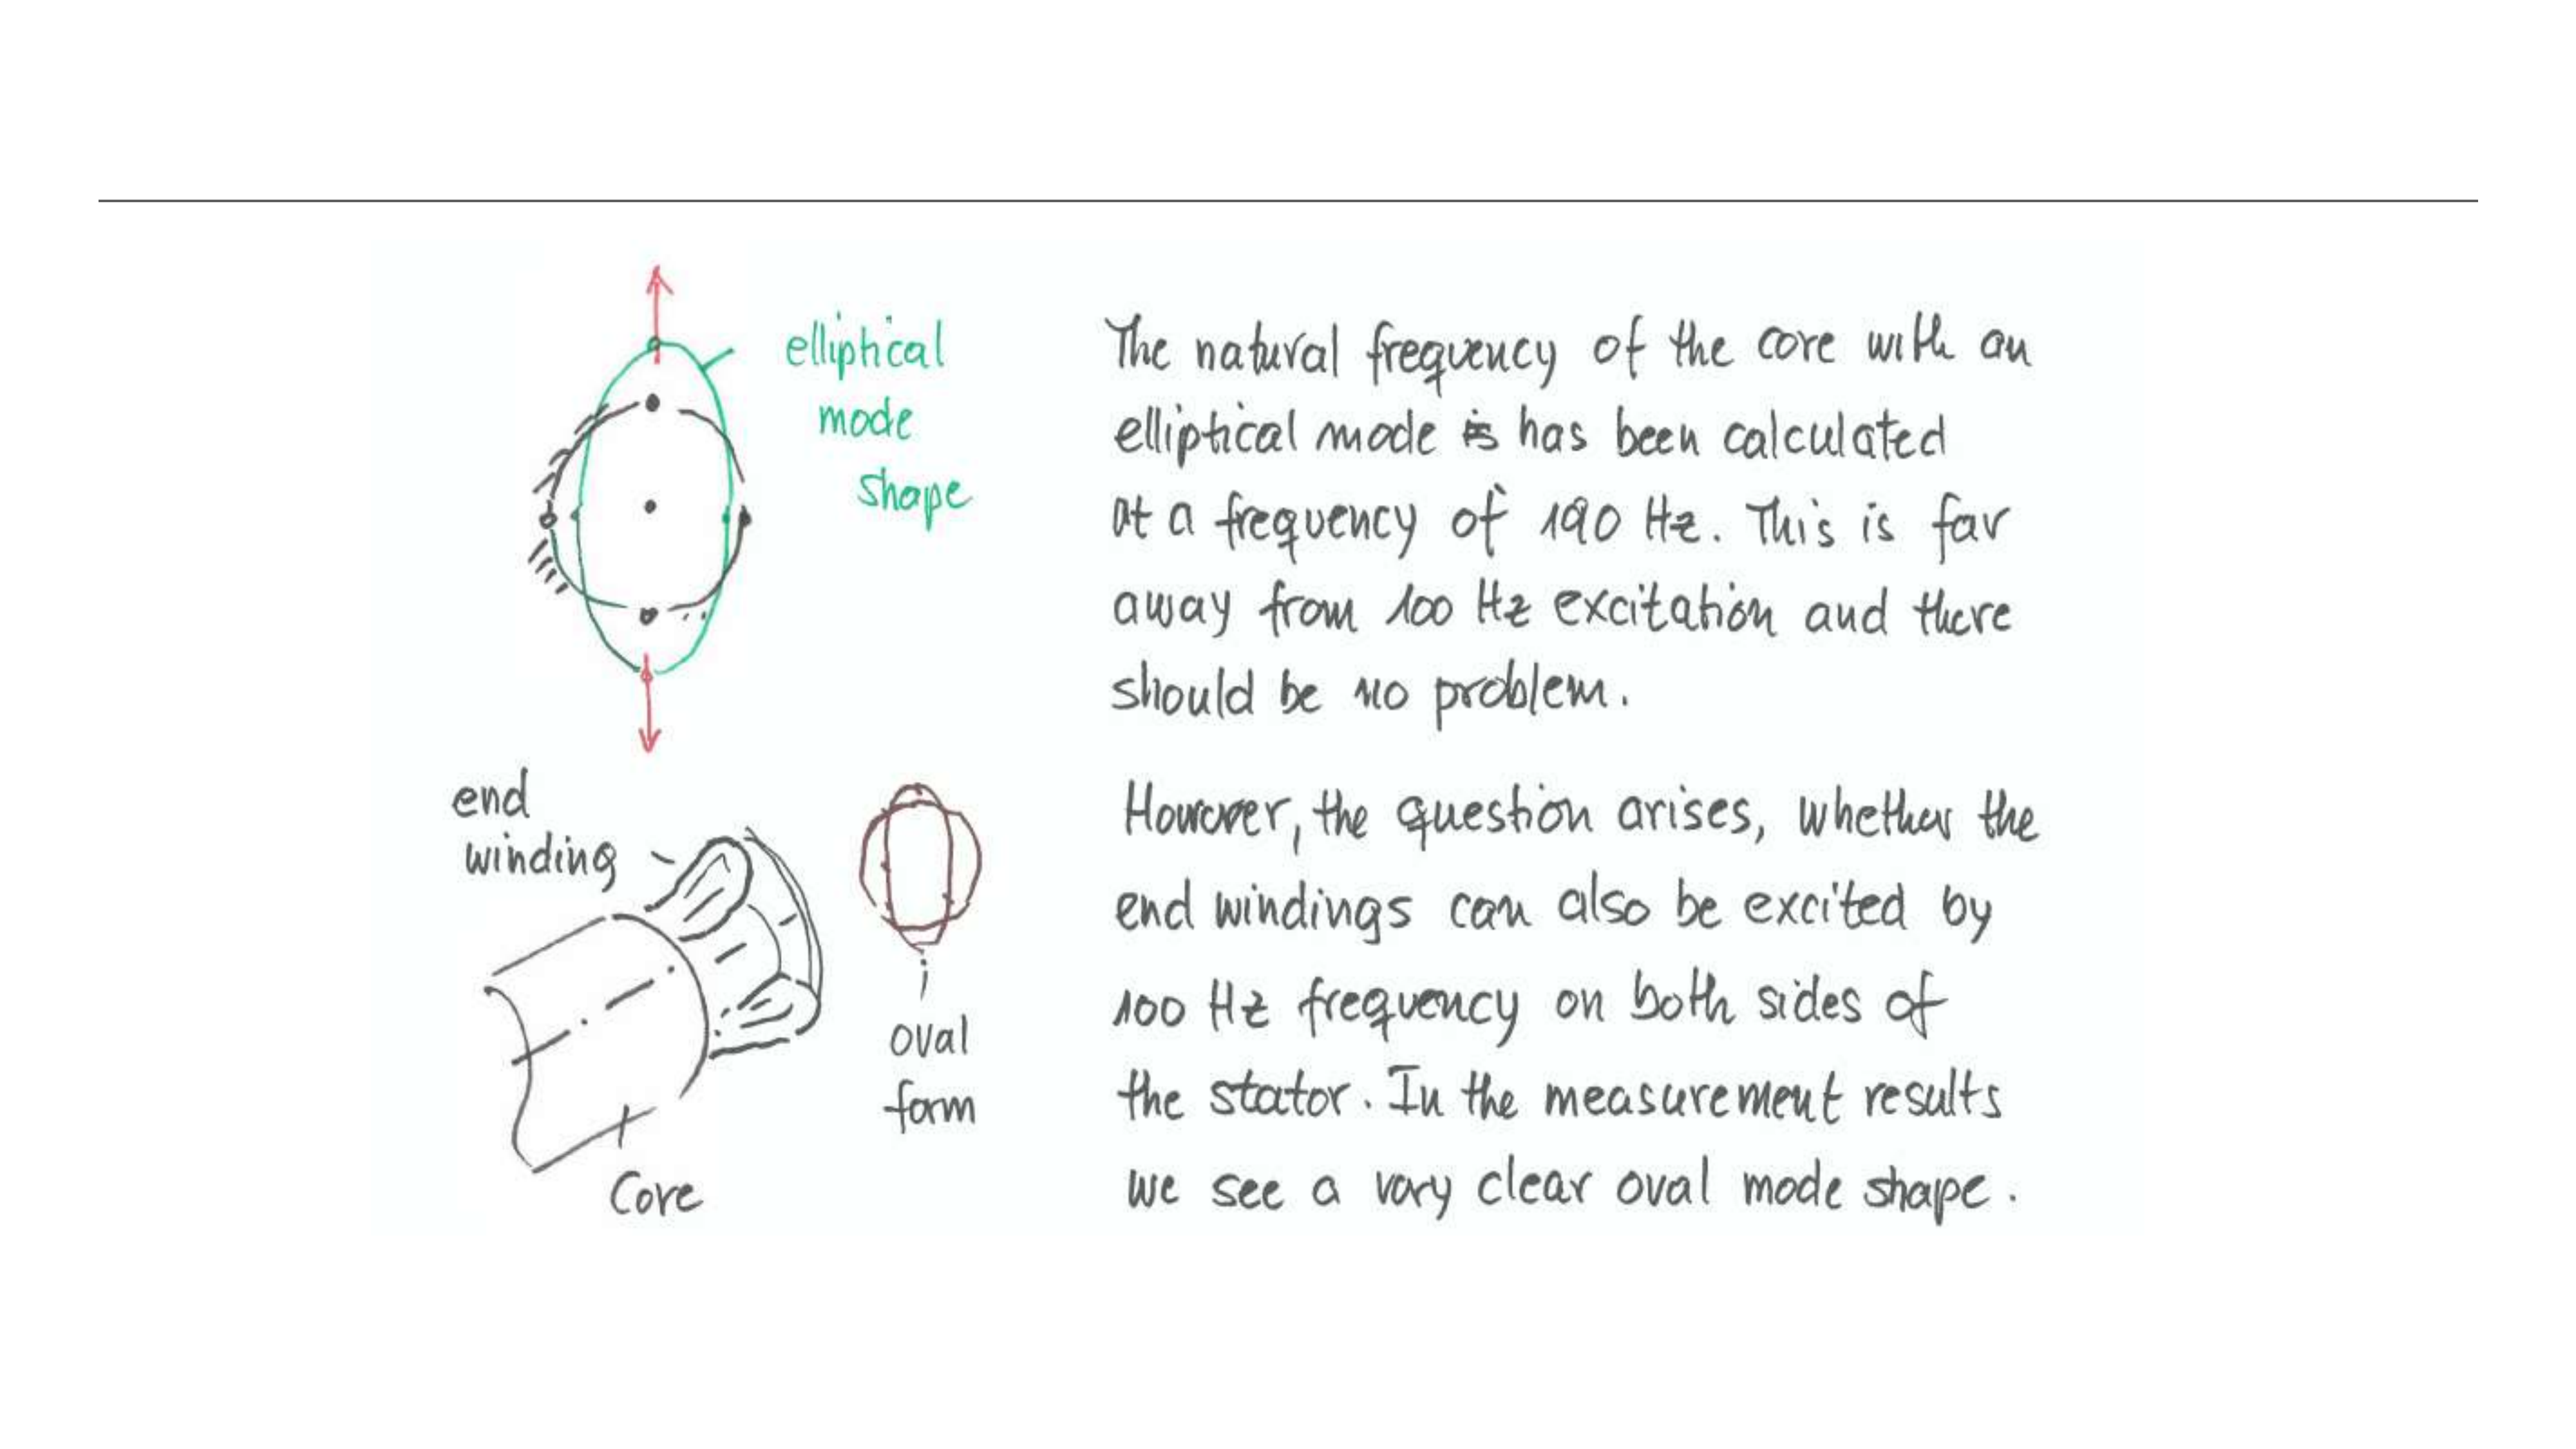 elliptical
mode
shape
The natural frequency of the core with an
elliptical mode is has been calculated
at a frequency of 190 Hz. This is far
away from 100 Hz excitation and there
should be no problem.
end
winding
oval
form
Core
However, the question arises, whether the
end windings can also be excited by
100 Hz frequency on both sides of
the stator. In the measurement results
we see a very clear oval mode shape.